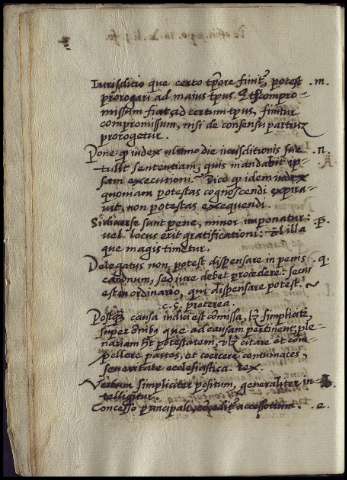 Iurisdictio que certo tp̄ore finit᷑, potest .m.
prorogari ad maius tp̄us. Et si compro-
missum fiat ad certum tp̄us, finitur
compromissum, nisi de consensu partiū
prorogetur.
Pone ꝙ iudex ultimo die iurisdictionis sue .n.
tulit sententiam, quis mandabit ip-
sam executioni. Dico ꝙ idem iudex
quoniam potestas cognoscendi expira-
uit, non potestas exequendi.
Si diuerse sunt pene, minor imponatur: .p.
uel locus erit gratificationi: illa
que magis timetur.
Delegatus non potest dispensare in penis .q.
canonum, sed iure debet procedere: secus
est in ordinario, qui dispensare potest.
c. preterea.
Postꝗ̄ causa iudici est comissa, simpliciter
super oībus que ad causam pertinent ple-
nariam potestatem, citare et com-
pellere partes, et coercere contumaces,
seueritate ecclesiastica. rex.
Verbum simpliciter positum, generaliter in-
telligitur.
Concesso principali, accessorium. .e.